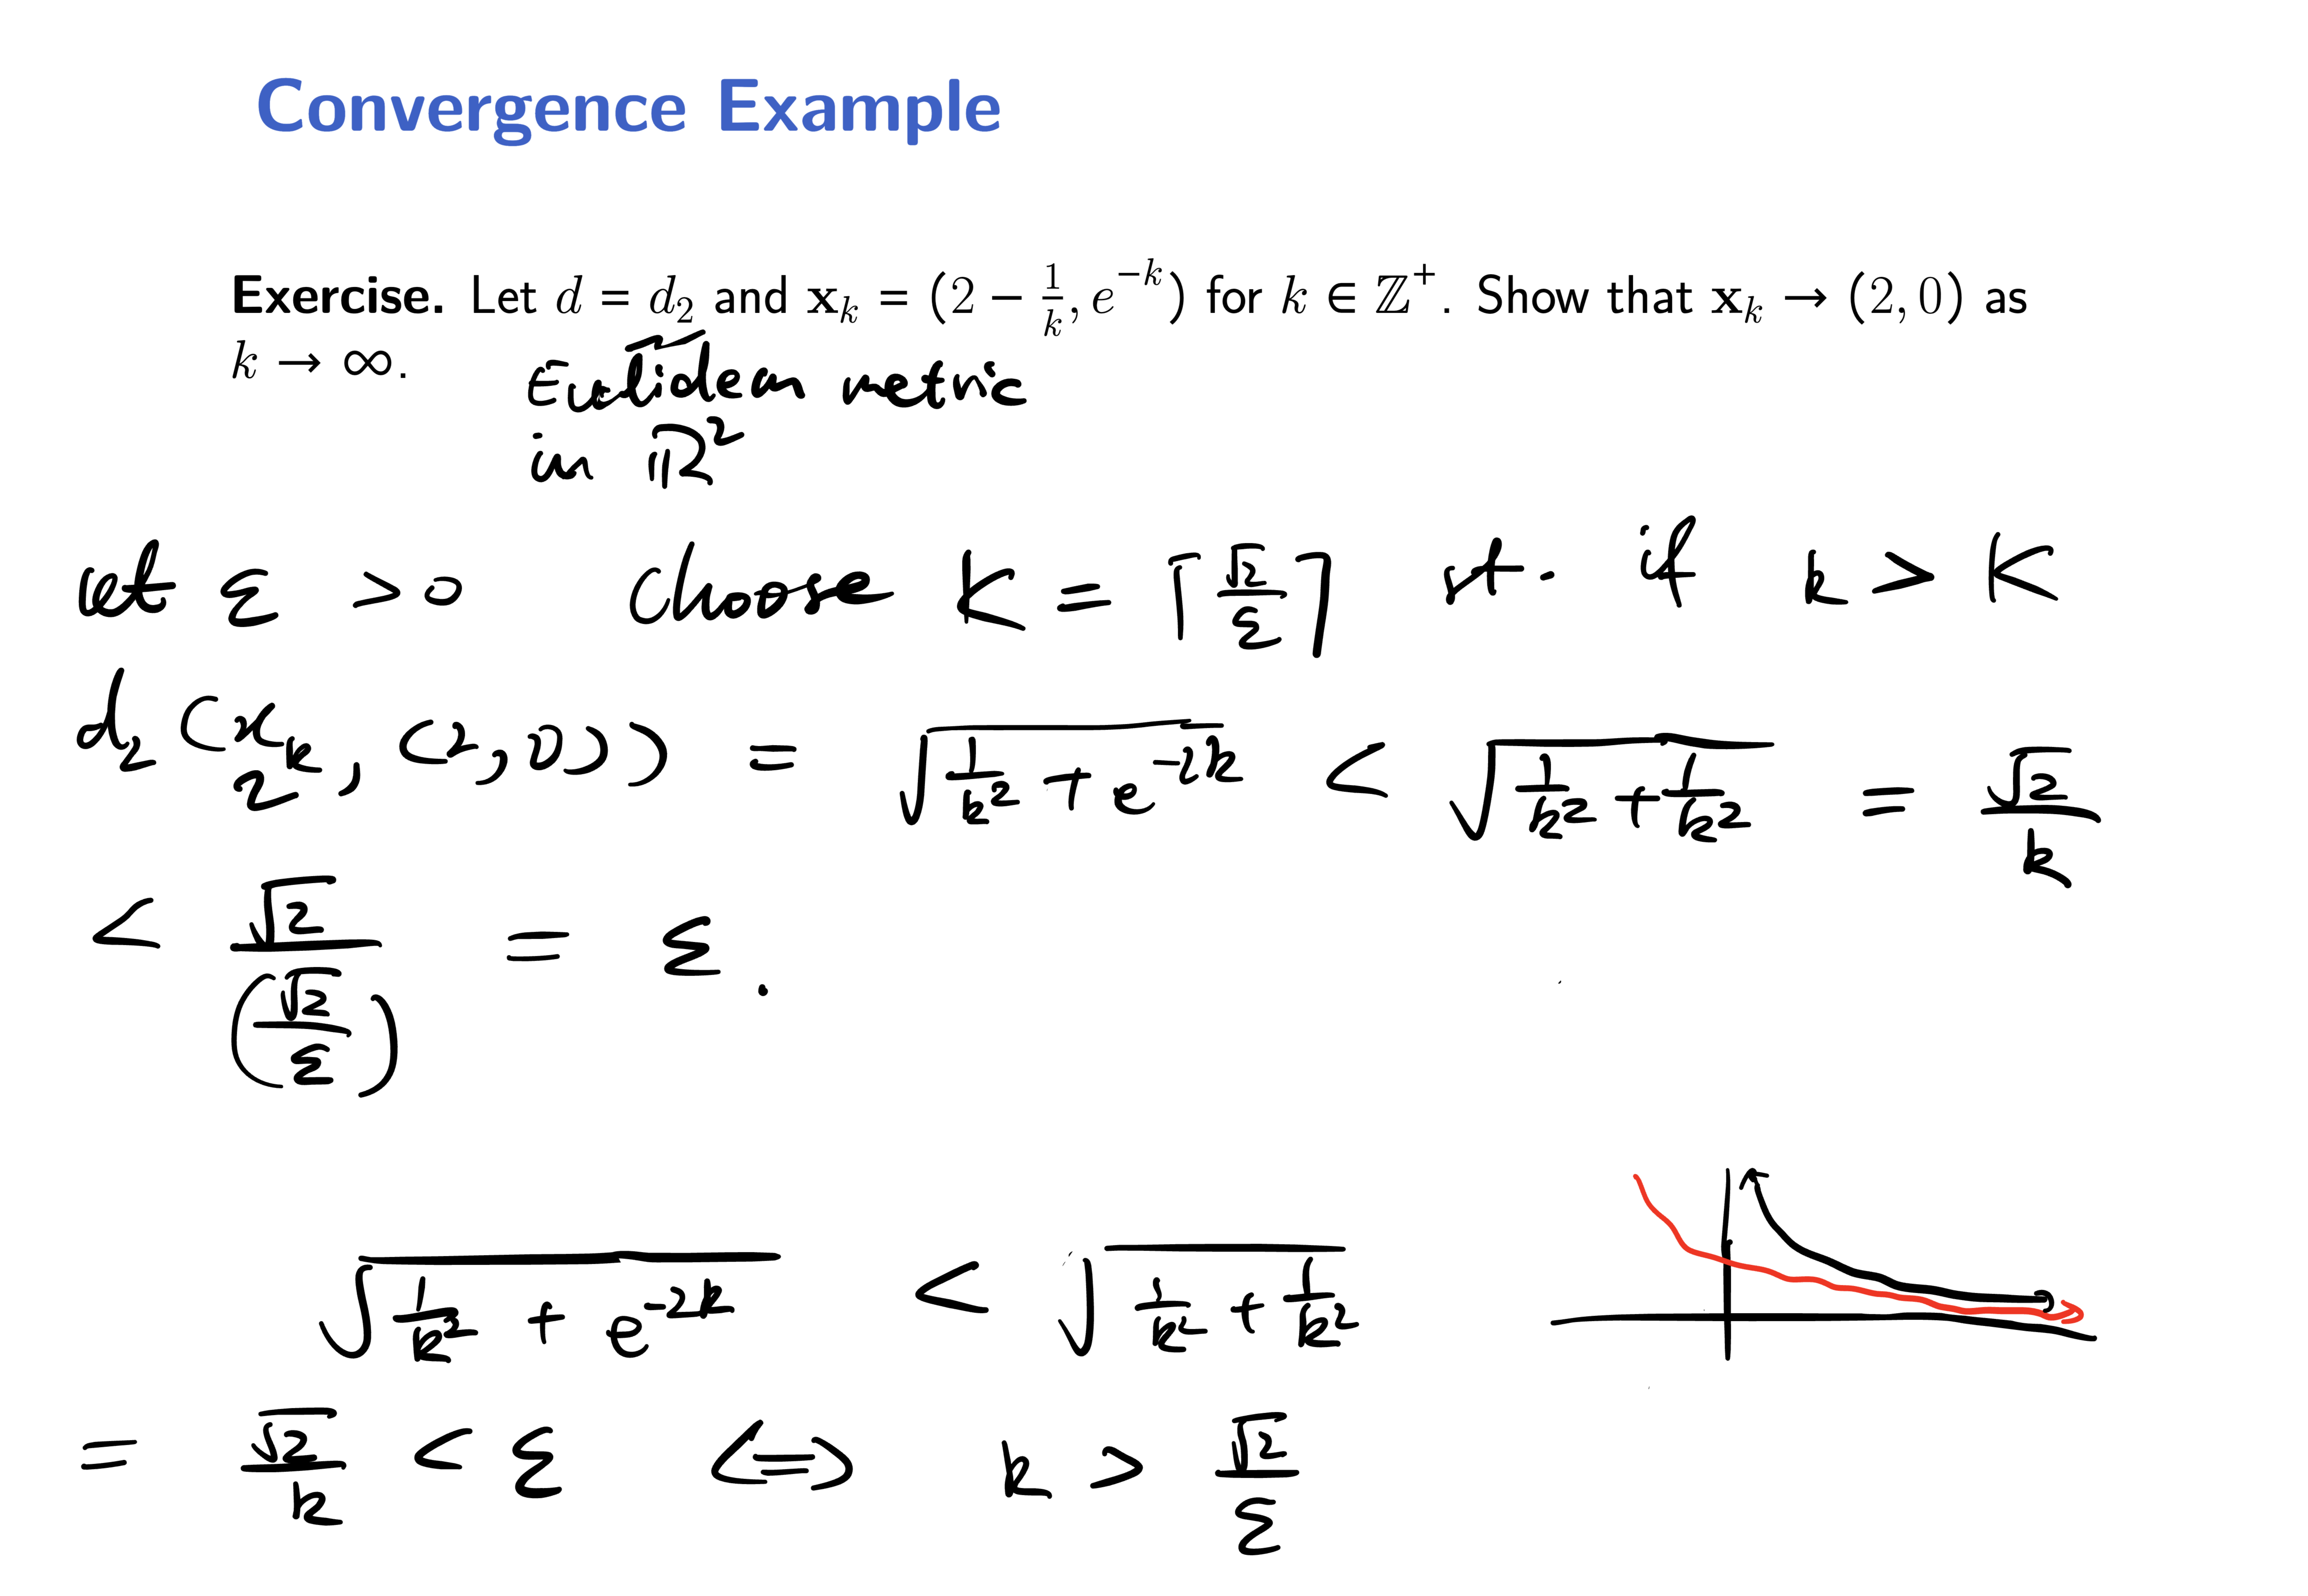 Convergence Example
Exercise. Let d = d₂ and 𝐱ₖ = (2 − 1/k, e^{−k}) for k ∈ ℤ⁺. Show that 𝐱ₖ → (2, 0) as
k → ∞.
Euclidean metric
in ℝ²
let ε > 0 choose K = ⌈√2/ε⌉ st. if k > K
d₂(x̰ₖ, (2,0)) = √(1/k² + e^{−2k}) < √(1/k² + 1/k²) = √2/k
< √2/(√2/ε) = ε.
√(1/k² + e^{−2k}) < √(1/k² + 1/k²)
= √2/k < ε ⟺ k > √2/ε